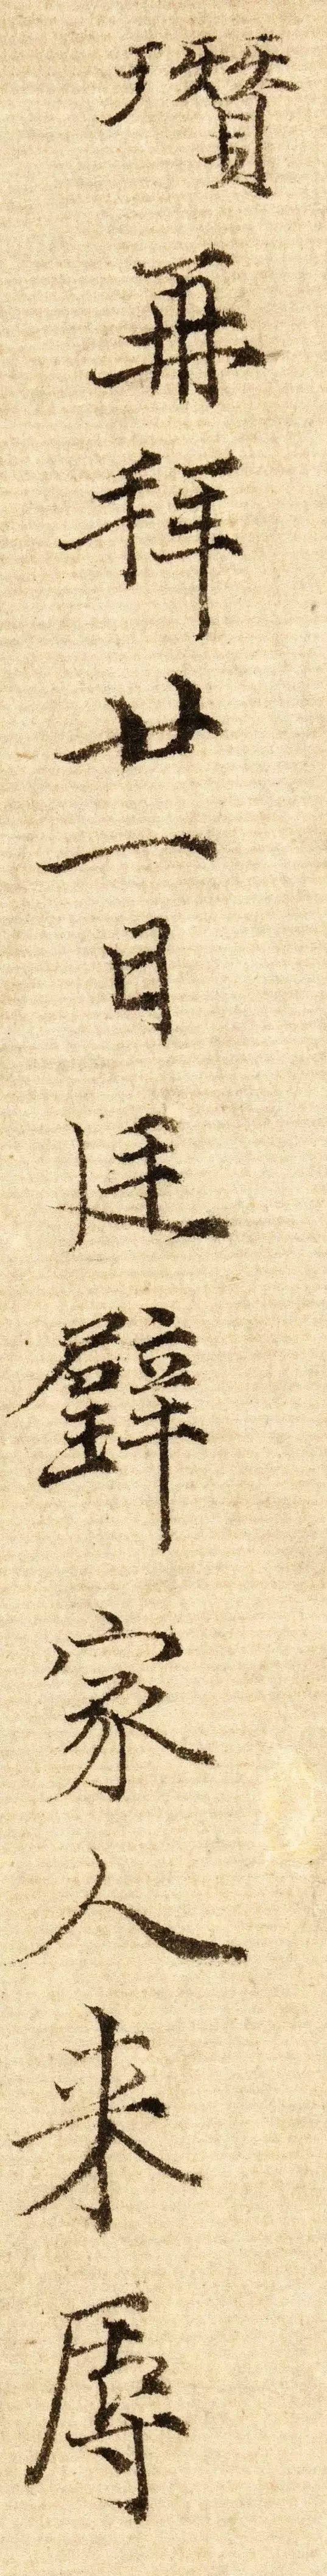 瓚再拜廿一日廷璧家人来辱